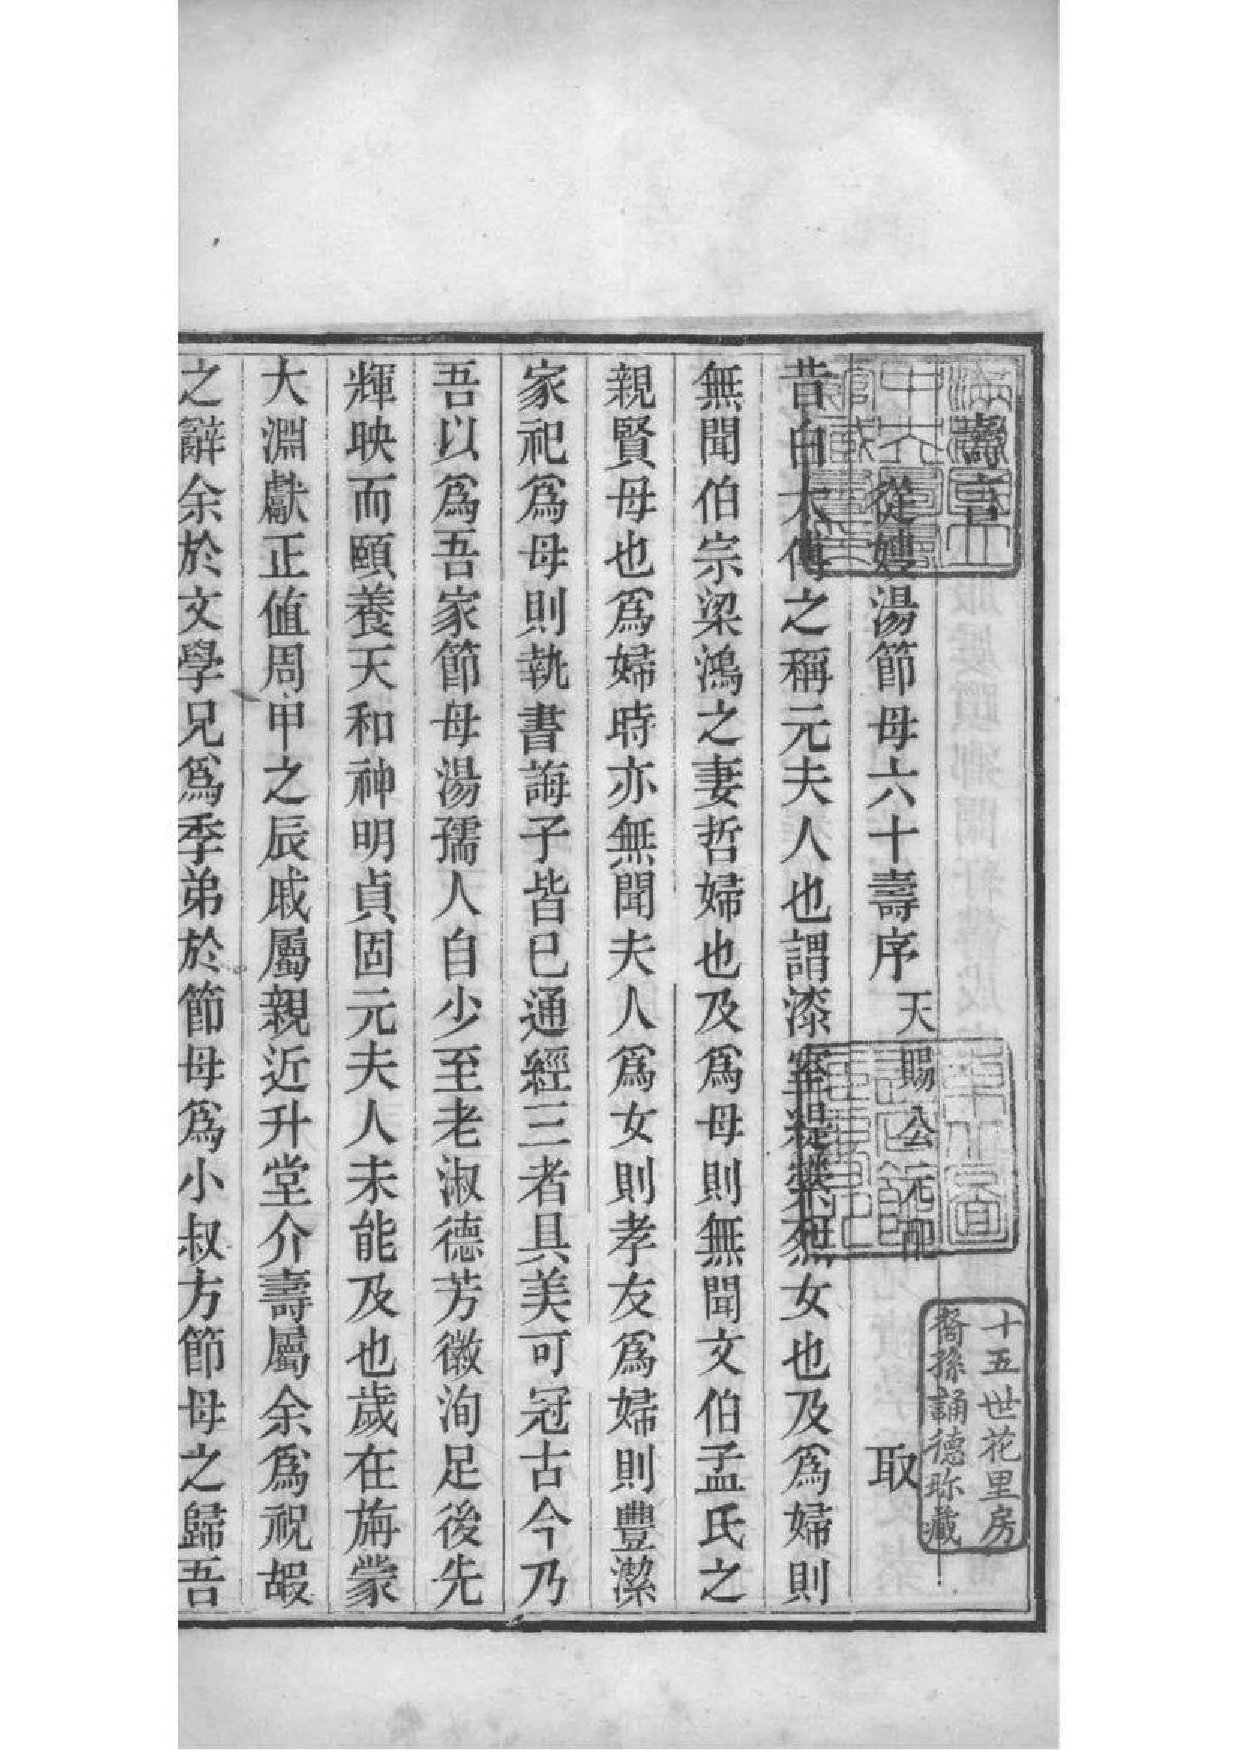 壽言
從嫂湯節母六十壽序 天賜公元配 取
昔白太傅之稱元夫人也謂漆室緹縈烈女也及爲婦則
無聞伯宗梁鴻之妻哲婦也及爲母則無聞文伯孟氏之
親賢母也爲婦時亦無聞夫人爲女則孝友爲婦則豐潔
家祀爲母則執書誨子皆已通經三者具美可冠古今乃
吾以爲吾家節母湯孺人自少至老淑德芳徽洵足後先
輝映而頤養天和神明貞固元夫人未能及也歲在旃蒙
大淵獻正值周甲之辰戚屬親近升堂介壽屬余爲祝嘏
之辭余於文學兄爲季弟於節母爲小叔方節母之歸吾
十五世花里房
裔孫誦德珍藏